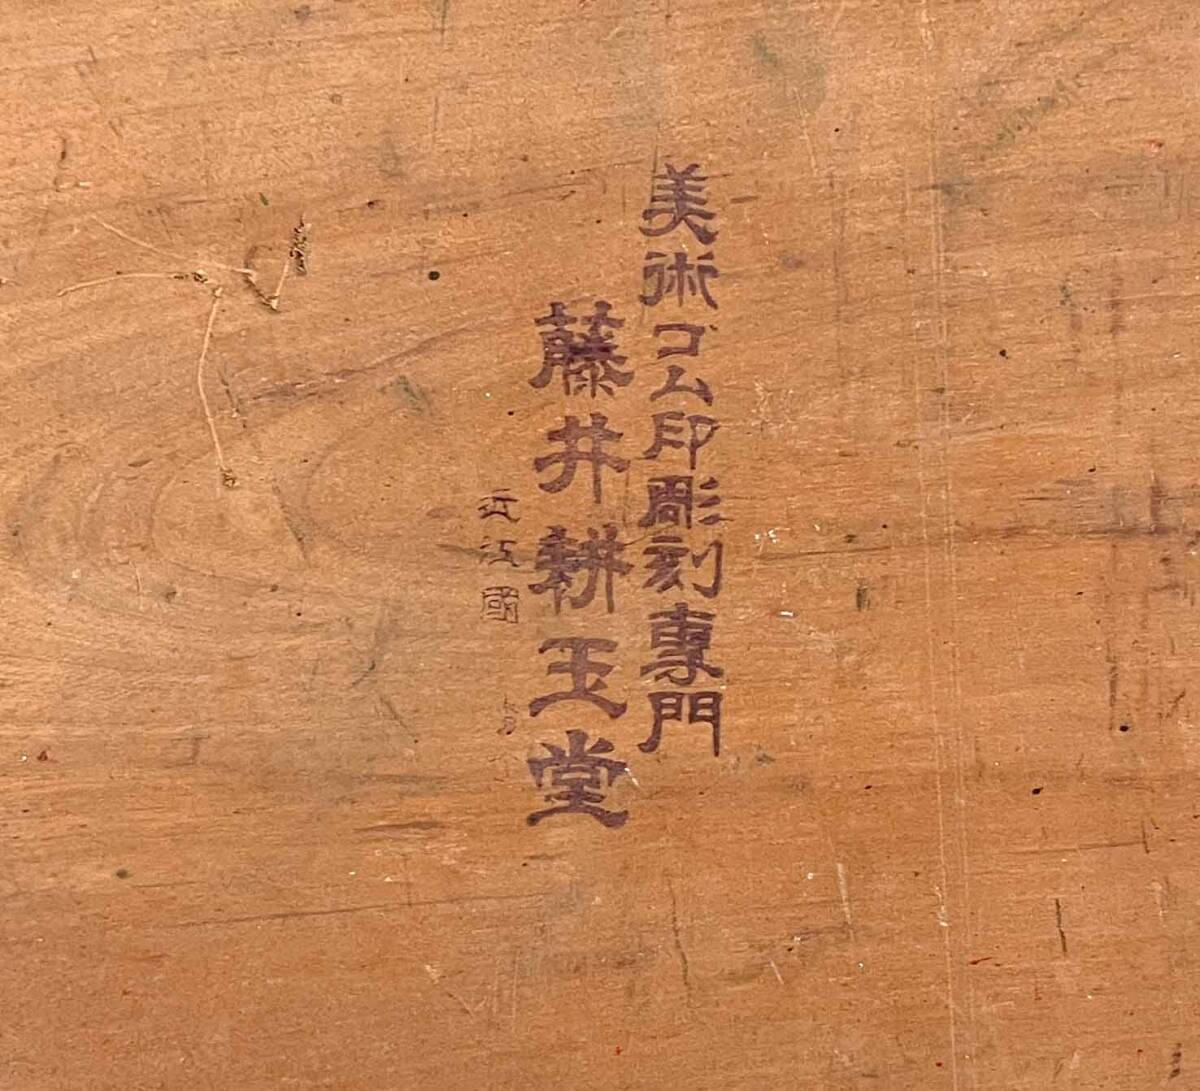 美術ゴム印彫刻専門
藤井耕玉堂
近江國